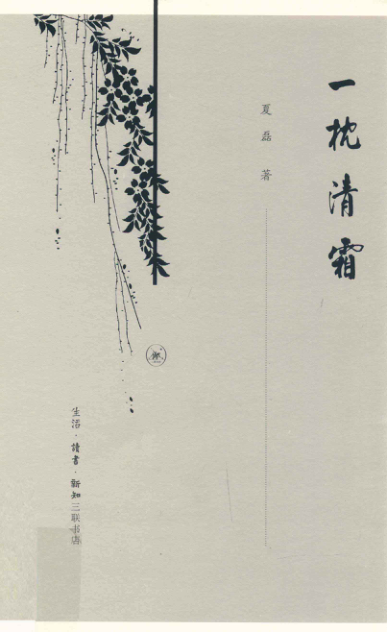 一枕清霜
夏磊 著
生活·讀書·新知三联书店